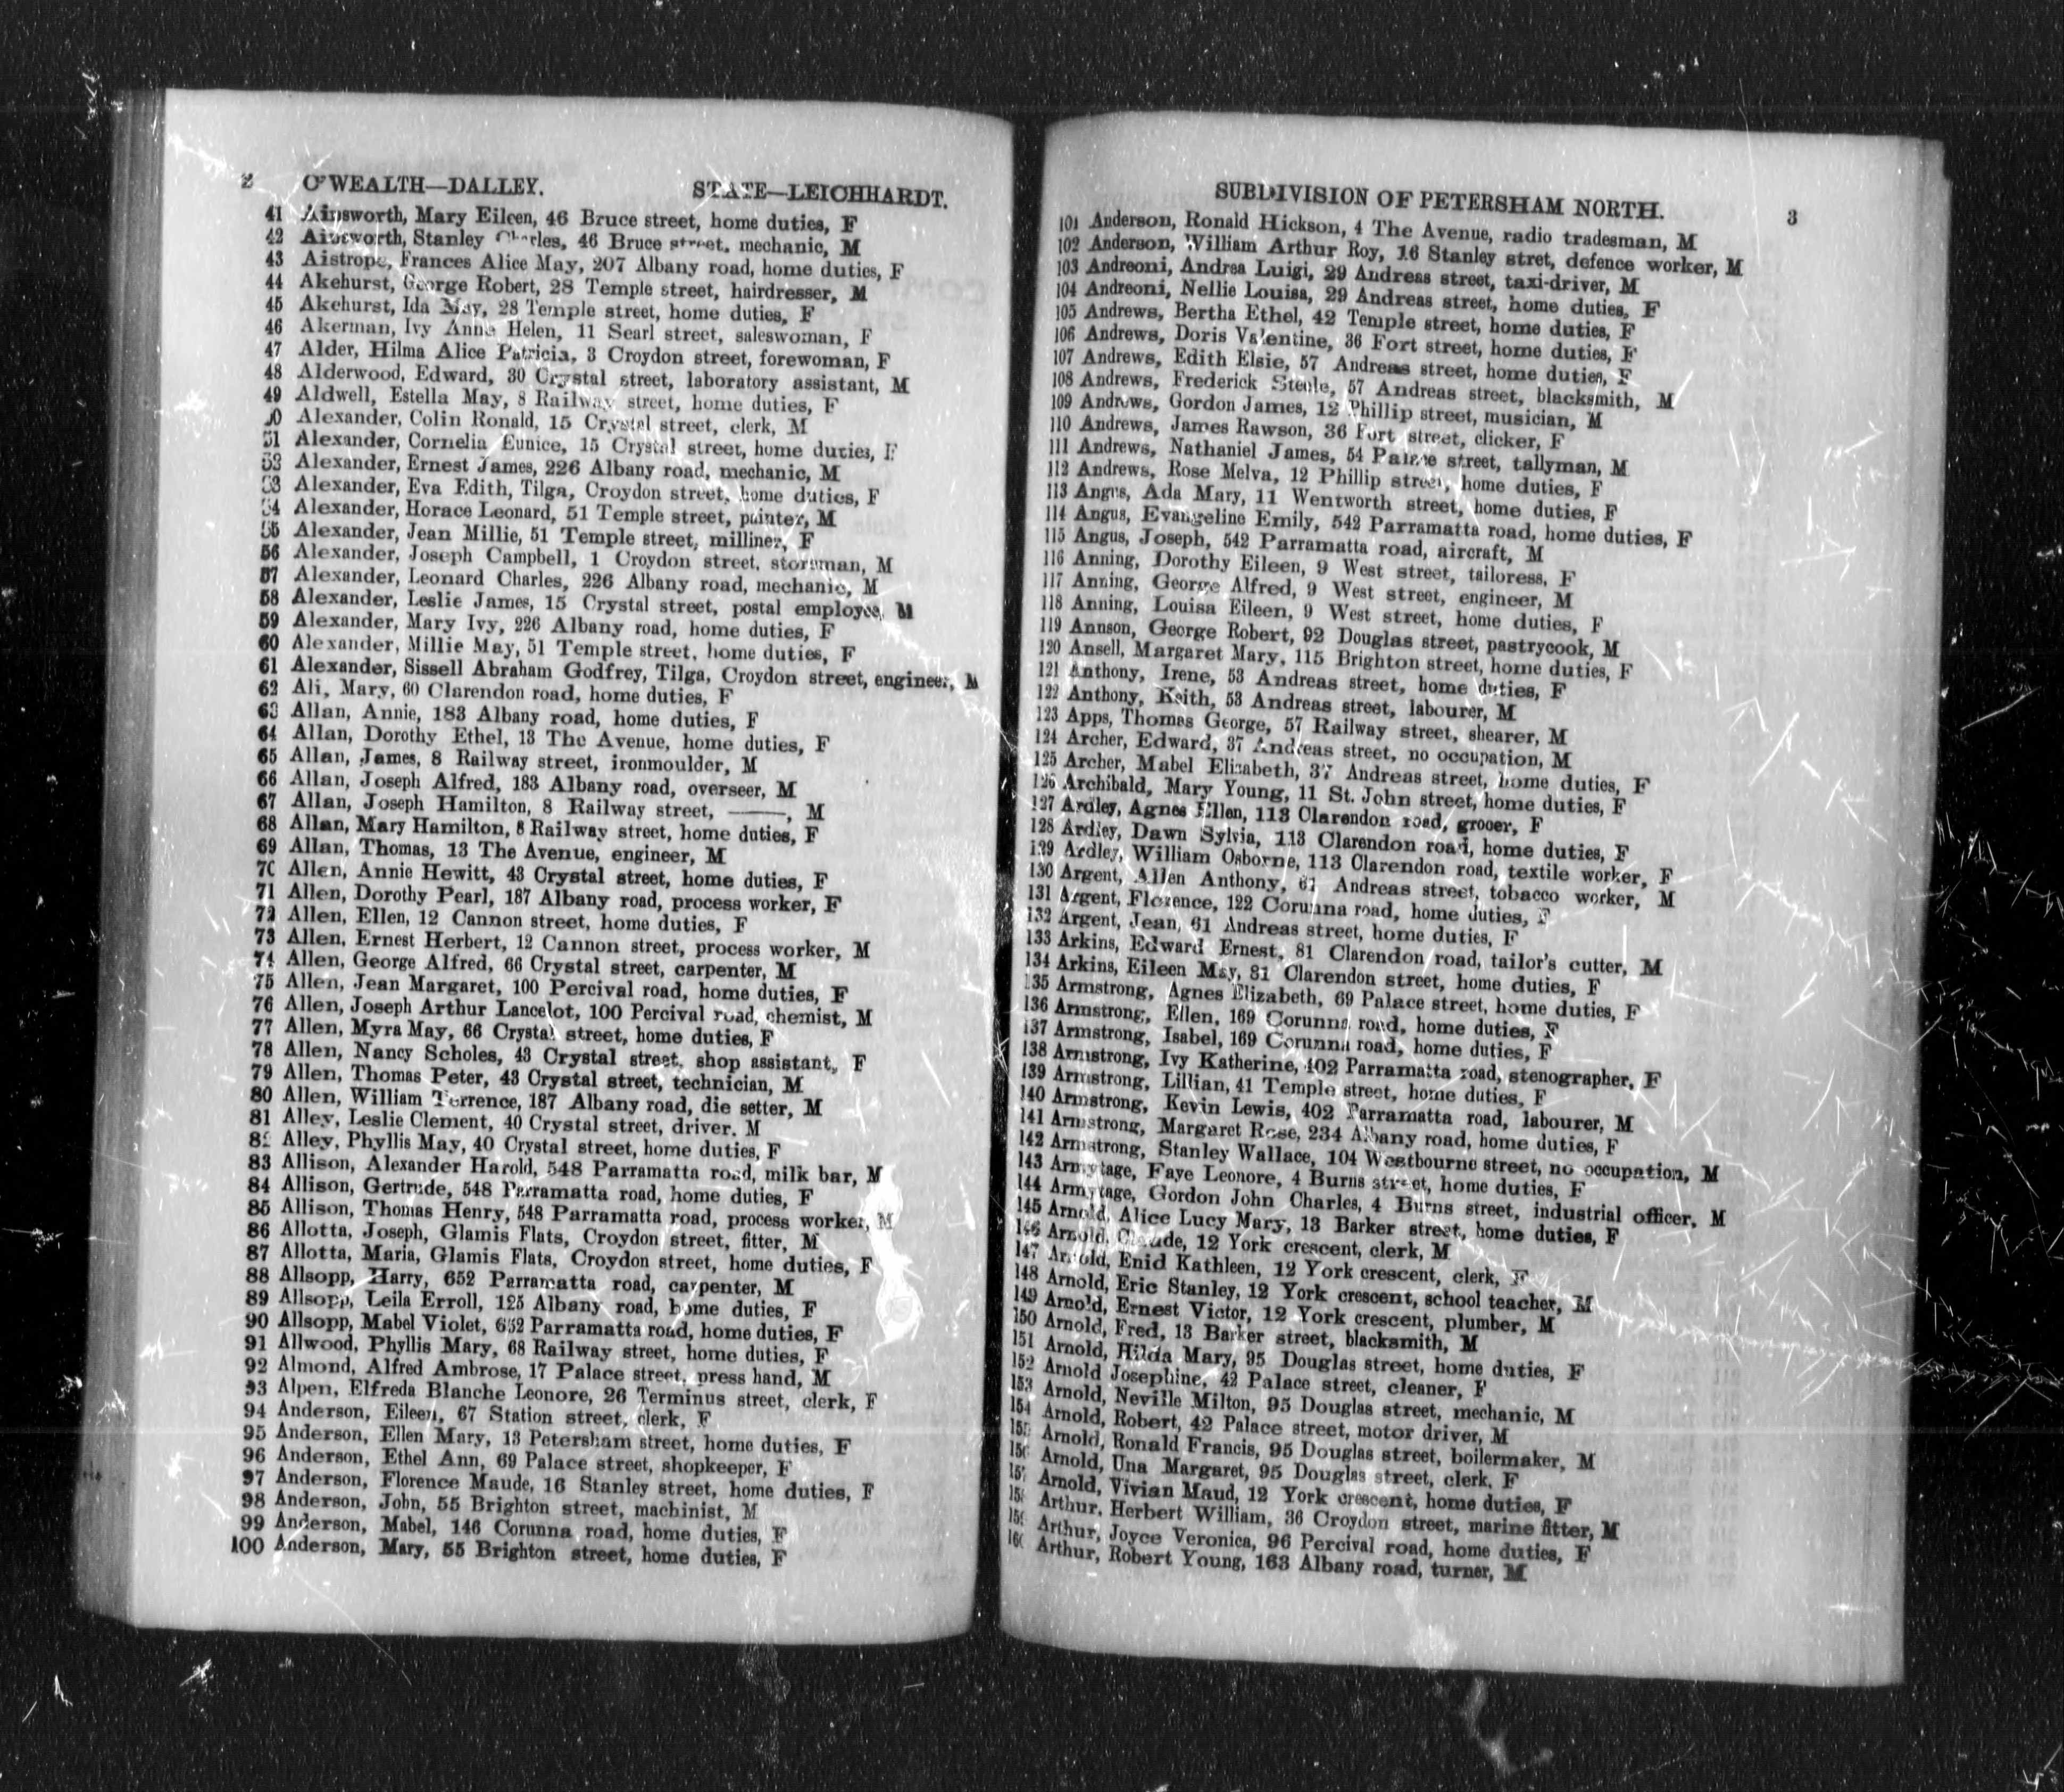 2 C'WEALTH—DALLEY. STATE—LEICHHARDT.
41 Ainsworth, Mary Eileen, 46 Bruce street, home duties, F
42 Ainsworth, Stanley Charles, 46 Bruce street, mechanic, M
43 Aistrope, Frances Alice May, 207 Albany road, home duties, F
44 Akehurst, George Robert, 28 Temple street, hairdresser, M
45 Akehurst, Ida May, 28 Temple street, home duties, F
46 Akerman, Ivy Anne Helen, 11 Searl street, saleswoman, F
47 Alder, Hilma Alice Patricia, 3 Croydon street, forewoman, F
48 Alderwood, Edward, 30 Crystal street, laboratory assistant, M
49 Aldwell, Estella May, 8 Railway street, home duties, F
50 Alexander, Colin Ronald, 15 Crystal street, clerk, M
51 Alexander, Cornelia Eunice, 15 Crystal street, home duties, F
52 Alexander, Ernest James, 226 Albany road, mechanic, M
53 Alexander, Eva Edith, Tilga, Croydon street, home duties, F
54 Alexander, Horace Leonard, 51 Temple street, painter, M
55 Alexander, Jean Millie, 51 Temple street, milliner, F
56 Alexander, Joseph Campbell, 1 Croydon street, storeman, M
57 Alexander, Leonard Charles, 226 Albany road, mechanic, M
58 Alexander, Leslie James, 15 Crystal street, postal employee, M
59 Alexander, Mary Ivy, 226 Albany road, home duties, F
60 Alexander, Millie May, 51 Temple street, home duties, F
61 Alexander, Sissell Abraham Godfrey, Tilga, Croydon street, engineer, M
62 Ali, Mary, 60 Clarendon road, home duties, F
63 Allan, Annie, 183 Albany road, home duties, F
64 Allan, Dorothy Ethel, 13 The Avenue, home duties, F
65 Allan, James, 8 Railway street, ironmoulder, M
66 Allan, Joseph Alfred, 183 Albany road, overseer, M
67 Allan, Joseph Hamilton, 8 Railway street, ———, M
68 Allan, Mary Hamilton, 8 Railway street, home duties, F
69 Allan, Thomas, 13 The Avenue, engineer, M
70 Allen, Annie Hewitt, 43 Crystal street, home duties, F
71 Allen, Dorothy Pearl, 187 Albany road, process worker, F
72 Allen, Ellen, 12 Cannon street, home duties, F
73 Allen, Ernest Herbert, 12 Cannon street, process worker, M
74 Allen, George Alfred, 66 Crystal street, carpenter, M
75 Allen, Jean Margaret, 100 Percival road, home duties, F
76 Allen, Joseph Arthur Lancelot, 100 Percival road, chemist, M
77 Allen, Myra May, 66 Crystal street, home duties, F
78 Allen, Nancy Scholes, 43 Crystal street, shop assistant, F
79 Allen, Thomas Peter, 43 Crystal street, technician, M
80 Allen, William Terrence, 187 Albany road, die setter, M
81 Alley, Leslie Clement, 40 Crystal street, driver, M
82 Alley, Phyllis May, 40 Crystal street, home duties, F
83 Allison, Alexander Harold, 548 Parramatta road, milk bar, M
84 Allison, Gertrude, 548 Parramatta road, home duties, F
85 Allison, Thomas Henry, 548 Parramatta road, process worker, M
86 Allotta, Joseph, Glamis Flats, Croydon street, fitter, M
87 Allotta, Maria, Glamis Flats, Croydon street, home duties, F
88 Allsopp, Harry, 652 Parramatta road, carpenter, M
89 Allsopp, Leila Erroll, 125 Albany road, home duties, F
90 Allsopp, Mabel Violet, 652 Parramatta road, home duties, F
91 Allwood, Phyllis Mary, 68 Railway street, home duties, F
92 Almond, Alfred Ambrose, 17 Palace street, press hand, M
93 Alpen, Elfreda Blanche Leonore, 26 Terminus street, clerk, F
94 Anderson, Eileen, 67 Station street, clerk, F
95 Anderson, Ellen Mary, 13 Petersham street, home duties, F
96 Anderson, Ethel Ann, 69 Palace street, shopkeeper, F
97 Anderson, Florence Maude, 16 Stanley street, home duties, F
98 Anderson, John, 55 Brighton street, machinist, M
99 Anderson, Mabel, 146 Corunna road, home duties, F
100 Anderson, Mary, 55 Brighton street, home duties, F
SUBDIVISION OF PETERSHAM NORTH. 3
101 Anderson, Ronald Hickson, 4 The Avenue, radio tradesman, M
102 Anderson, William Arthur Roy, 16 Stanley stret, defence worker, M
103 Andreoni, Andrea Luigi, 29 Andreas street, taxi-driver, M
104 Andreoni, Nellie Louisa, 29 Andreas street, home duties, F
105 Andrews, Bertha Ethel, 42 Temple street, home duties, F
106 Andrews, Doris Valentine, 36 Fort street, home duties, F
107 Andrews, Edith Elsie, 57 Andreas street, home duties, F
108 Andrews, Frederick Steele, 57 Andreas street, blacksmith, M
109 Andrews, Gordon James, 12 Phillip street, musician, M
110 Andrews, James Rawson, 36 Fort street, clicker, F
111 Andrews, Nathaniel James, 54 Palace street, tallyman, M
112 Andrews, Rose Melva, 12 Phillip street, home duties, F
113 Angus, Ada Mary, 11 Wentworth street, home duties, F
114 Angus, Evangeline Emily, 542 Parramatta road, home duties, F
115 Angus, Joseph, 542 Parramatta road, aircraft, M
116 Anning, Dorothy Eileen, 9 West street, tailoress, F
117 Anning, George Alfred, 9 West street, engineer, M
118 Anning, Louisa Eileen, 9 West street, home duties, F
119 Annson, George Robert, 92 Douglas street, pastrycook, M
120 Ansell, Margaret Mary, 115 Brighton street, home duties, F
121 Anthony, Irene, 53 Andreas street, home duties, F
122 Anthony, Keith, 53 Andreas street, labourer, M
123 Apps, Thomas George, 57 Railway street, shearer, M
124 Archer, Edward, 37 Andreas street, no occupation, M
125 Archer, Mabel Elizabeth, 37 Andreas street, home duties, F
126 Archibald, Mary Young, 11 St. John street, home duties, F
127 Ardley, Agnes Ellen, 113 Clarendon road, grocer, F
128 Ardley, Dawn Sylvia, 113 Clarendon road, home duties, F
129 Ardley, William Osborne, 113 Clarendon road, textile worker, F
130 Argent, Allen Anthony, 61 Andreas street, tobacco worker, M
131 Argent, Florence, 122 Corunna road, home duties, F
132 Argent, Jean, 61 Andreas street, home duties, F
133 Arkins, Edward Ernest, 81 Clarendon road, tailor's cutter, M
134 Arkins, Eileen May, 81 Clarendon street, home duties, F
135 Armstrong, Agnes Elizabeth, 69 Palace street, home duties, F
136 Armstrong, Ellen, 169 Corunna road, home duties, F
137 Armstrong, Isabel, 169 Corunna road, home duties, F
138 Armstrong, Ivy Katherine, 402 Parramatta road, stenographer, F
139 Armstrong, Lillian, 41 Temple street, home duties, F
140 Armstrong, Kevin Lewis, 402 Parramatta road, labourer, M
141 Armstrong, Margaret Rose, 234 Albany road, home duties, F
142 Armstrong, Stanley Wallace, 104 Westbourne street, no occupation, M
143 Armytage, Faye Leonore, 4 Burns street, home duties, F
144 Armytage, Gordon John Charles, 4 Burns street, industrial officer, M
145 Arnold, Alice Lucy Mary, 13 Barker street, home duties, F
146 Arnold, Claude, 12 York crescent, clerk, M
147 Arnold, Enid Kathleen, 12 York crescent, clerk, F
148 Arnold, Eric Stanley, 12 York crescent, school teacher, M
149 Arnold, Ernest Victor, 12 York crescent, plumber, M
150 Arnold, Fred, 13 Barker street, blacksmith, M
151 Arnold, Hilda Mary, 95 Douglas street, home duties, F
152 Arnold Josephine, 42 Palace street, cleaner, F
153 Arnold, Neville Milton, 95 Douglas street, mechanic, M
154 Arnold, Robert, 42 Palace street, motor driver, M
155 Arnold, Ronald Francis, 95 Douglas street, boilermaker, M
156 Arnold, Una Margaret, 95 Douglas street, clerk, F
157 Arnold, Vivian Maud, 12 York crescent, home duties, F
158 Arthur, Herbert William, 36 Croydon street, marine fitter, M
159 Arthur, Joyce Veronica, 96 Percival road, home duties, F
160 Arthur, Robert Young, 163 Albany road, turner, M